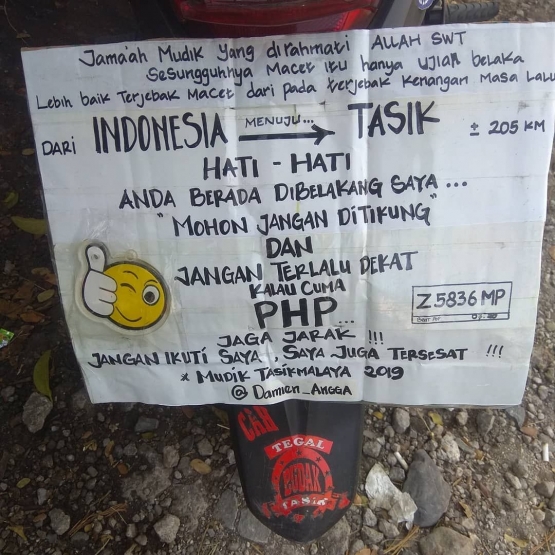 Jama'ah Mudik Yang dirahmati ALLAH SWT
Sesungguhnya Macet itu hanya Ujian belaka
Lebih baik Terjebak Macet dari pada terjebak Kenangan Masa Lalu
DARI INDONESIA MENUJU... TASIK ± 205 KM
HATI - HATI
ANDA BERADA DIBELAKANG SAYA ...
"MOHON JANGAN DITIKUNG"
DAN
JANGAN TERLALU DEKAT
KALAU CUMA
PHP...
Z 5836 MP
JAGA JARAK !!!
JANGAN IKUTI SAYA, SAYA JUGA TERSESAT !!!
* MUDIK TASIKMALAYA 2019
@ Damien_Angga
CAH
TEGAL
BUDAK
TASIK